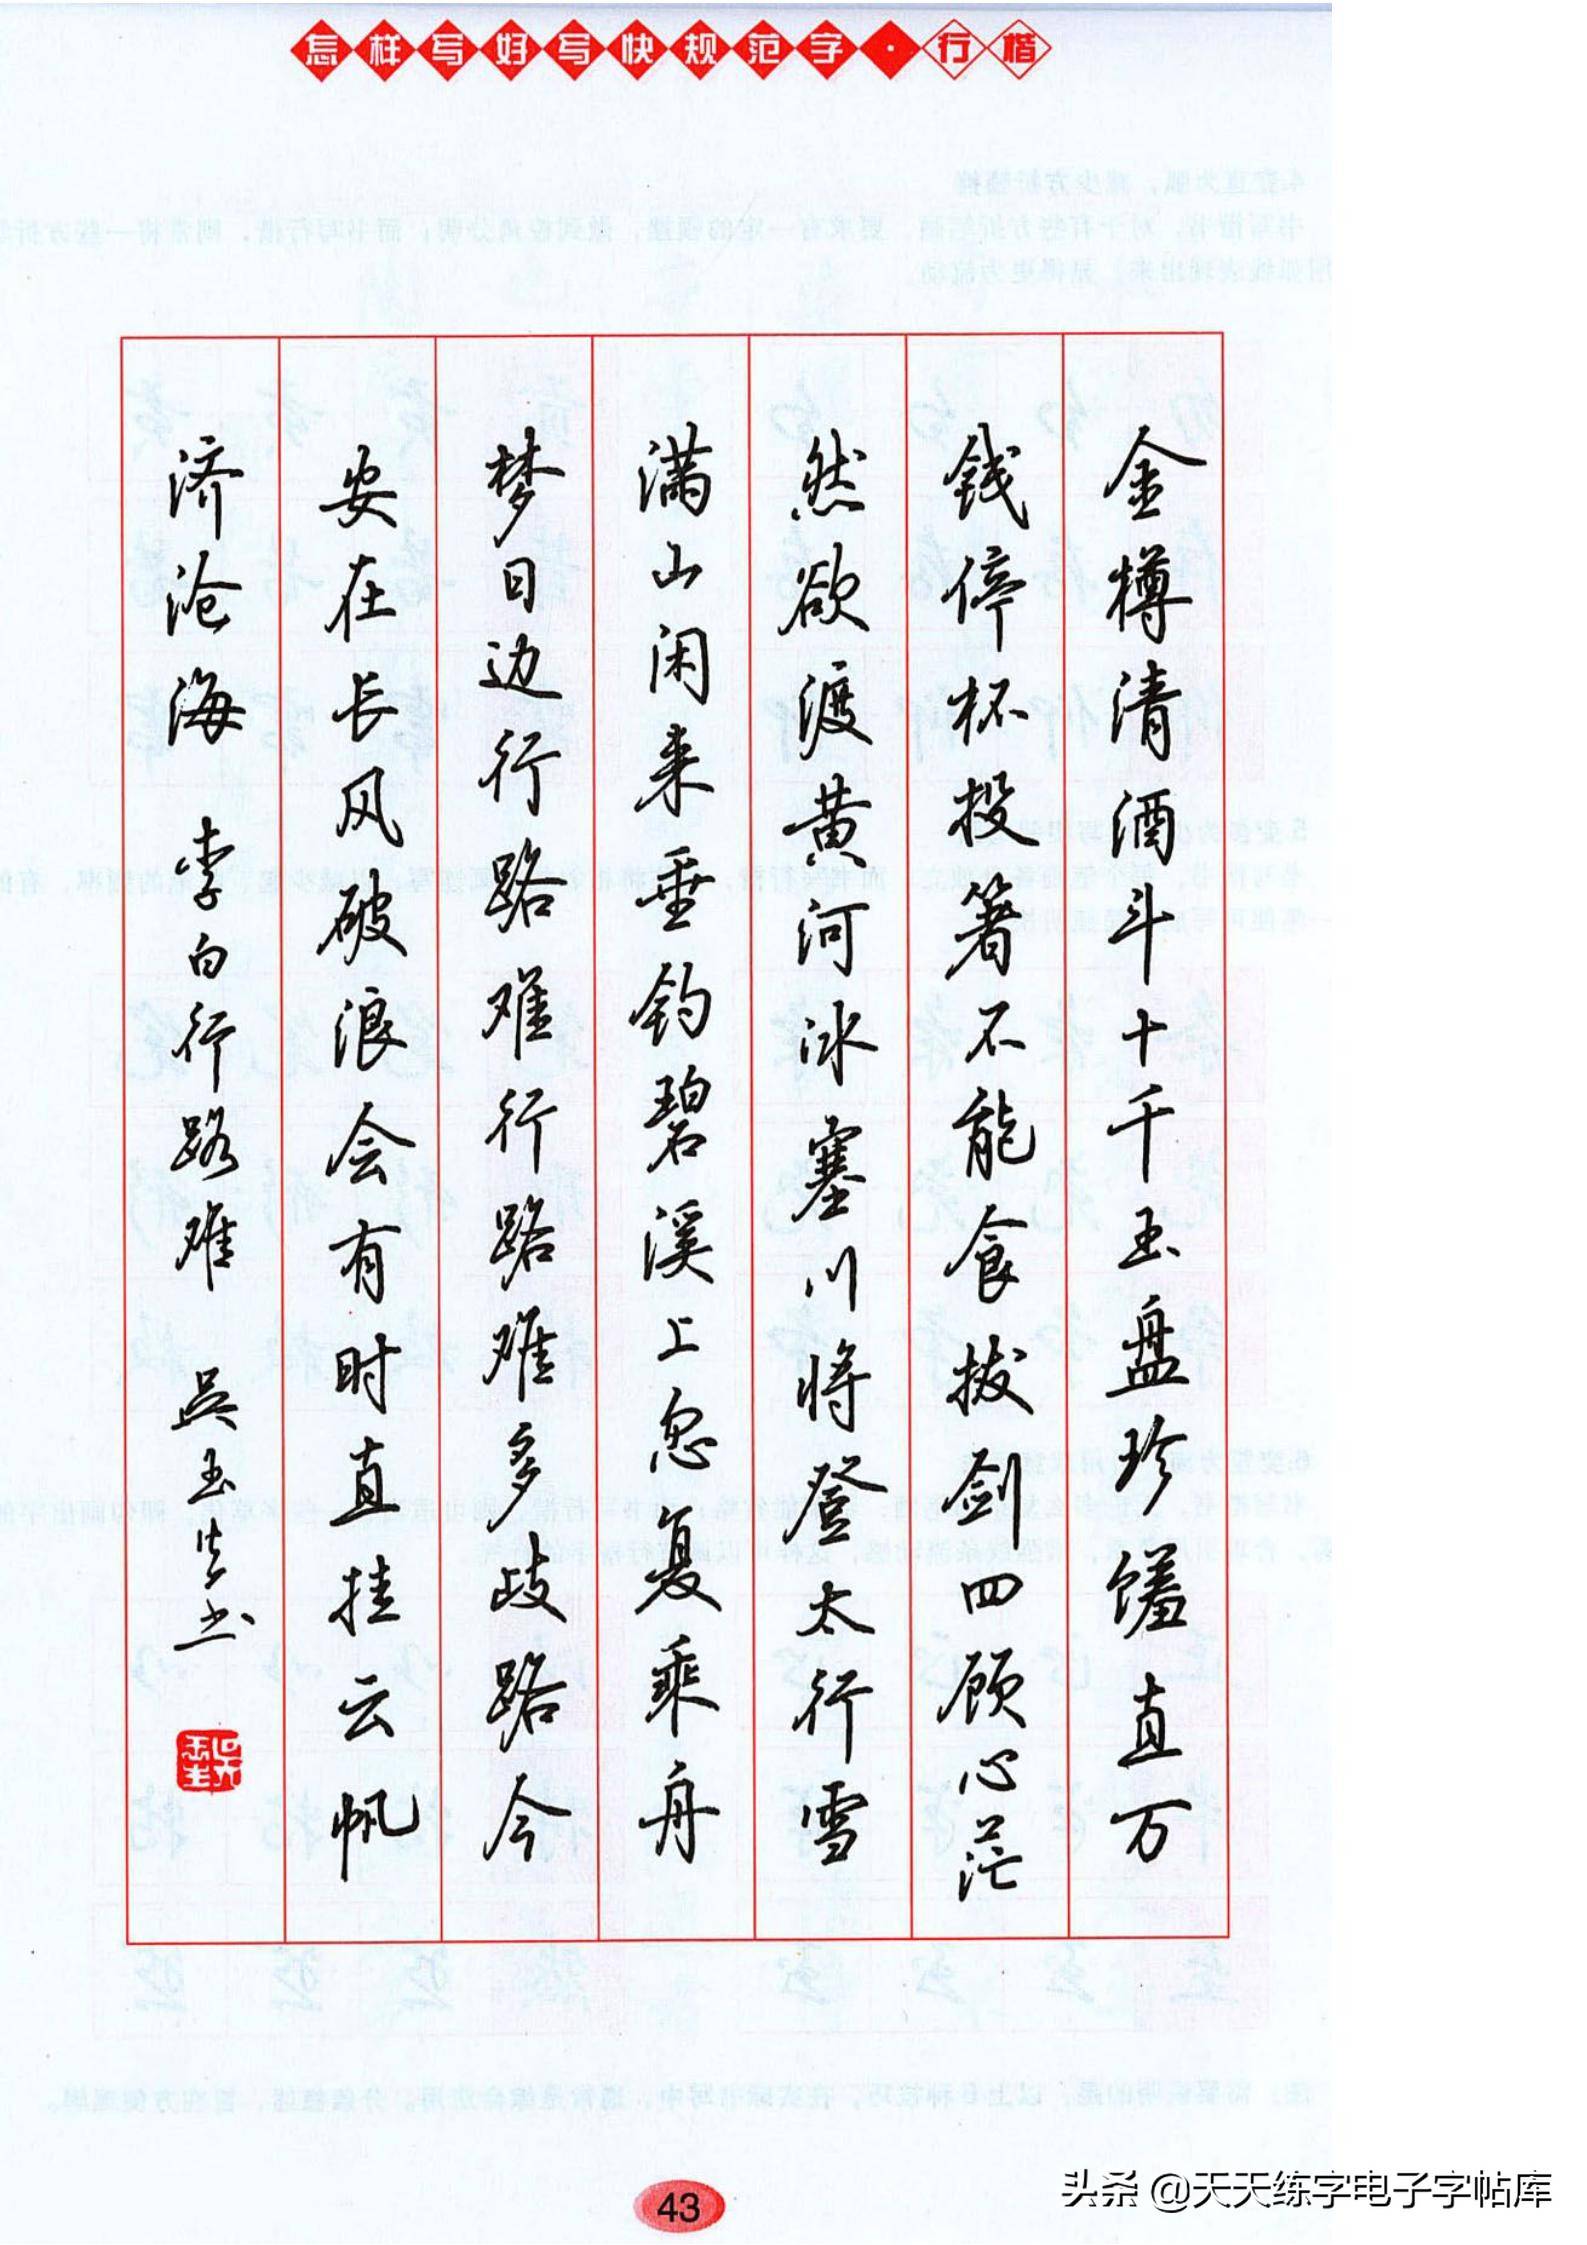 怎样写好写快规范字·行楷
金樽清酒斗十千玉盘珍馐直万
钱停杯投箸不能食拔剑四顾心茫
然欲渡黄河冰塞川将登太行雪
满山闲来垂钓碧溪上忽复乘舟
梦日边行路难行路难多歧路今
安在长风破浪会有时直挂云帆
济沧海 李白行路难 吴玉生书
43
头条 @天天练字电子字帖库